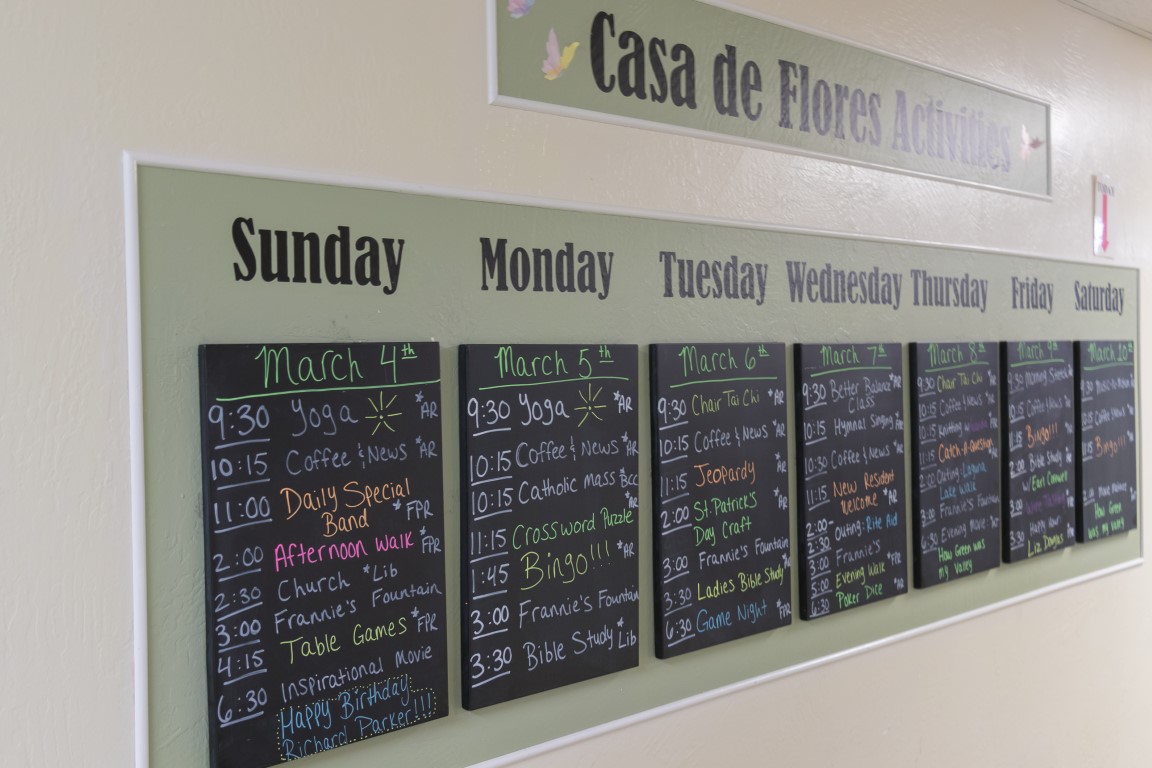 Casa de Flores Activities
Sunday
March 4th
9:30 Yoga *AR
10:15 Coffee & News *AR
11:00 Daily Special
Band *FPR
2:00 Afternoon Walk *FPR
2:30 Church *Lib
3:00 Frannie's Fountain
4:15 Table Games *FPR
6:30 Inspirational Movie
Happy Birthday
Richard Parker!!!
Monday
March 5th
9:30 Yoga *AR
10:15 Coffee & News *AR
10:15 Catholic mass *BCC
11:15 Crossword Puzzle *AR
1:45 Bingo!!! *AR
3:00 Frannie's Fountain
3:30 Bible Study *Lib
Tuesday
March 6th
9:30 Chair Tai Chi *AR
10:15 Coffee & News *AR
11:15 Jeopardy *AR
2:00 St. Patrick's
Day Craft
3:00 Frannie's Fountain
3:30 Ladies Bible Study
6:30 Game Night *FPR
Wednesday
March 7th
9:30 Better Balance *AR
Class
10:15 Hymnal Singing
10:30 Coffee & News *AR
11:15 New Resident
Welcome *AR
2:00-
2:30 Outing: Rite Aid
3:00 Frannie's
5:00 Evening Walk *FPR
6:30 Poker Dice *AR
Thursday
March 8th
9:30 Chair Tai Chi
10:15 Coffee & News
10:15 Knitting
11:15 Catch-A-Question
2:00 Outing: Laguna
Lake Walk
3:00 Frannie's Fountain
6:30 Evening Movie
How Green was
my Valley
Friday
March 9th
9:30 Morning
10:15 Coffee & News
11:15 Bingo!!!
2:00 Bible Study
w/ Earl Conwell
3:00
3:30 Happy Hour
Liz Douglas
Saturday
March 10th
9:30
10:15 Coffee & News
Bingo!!!
How Green
was my valley